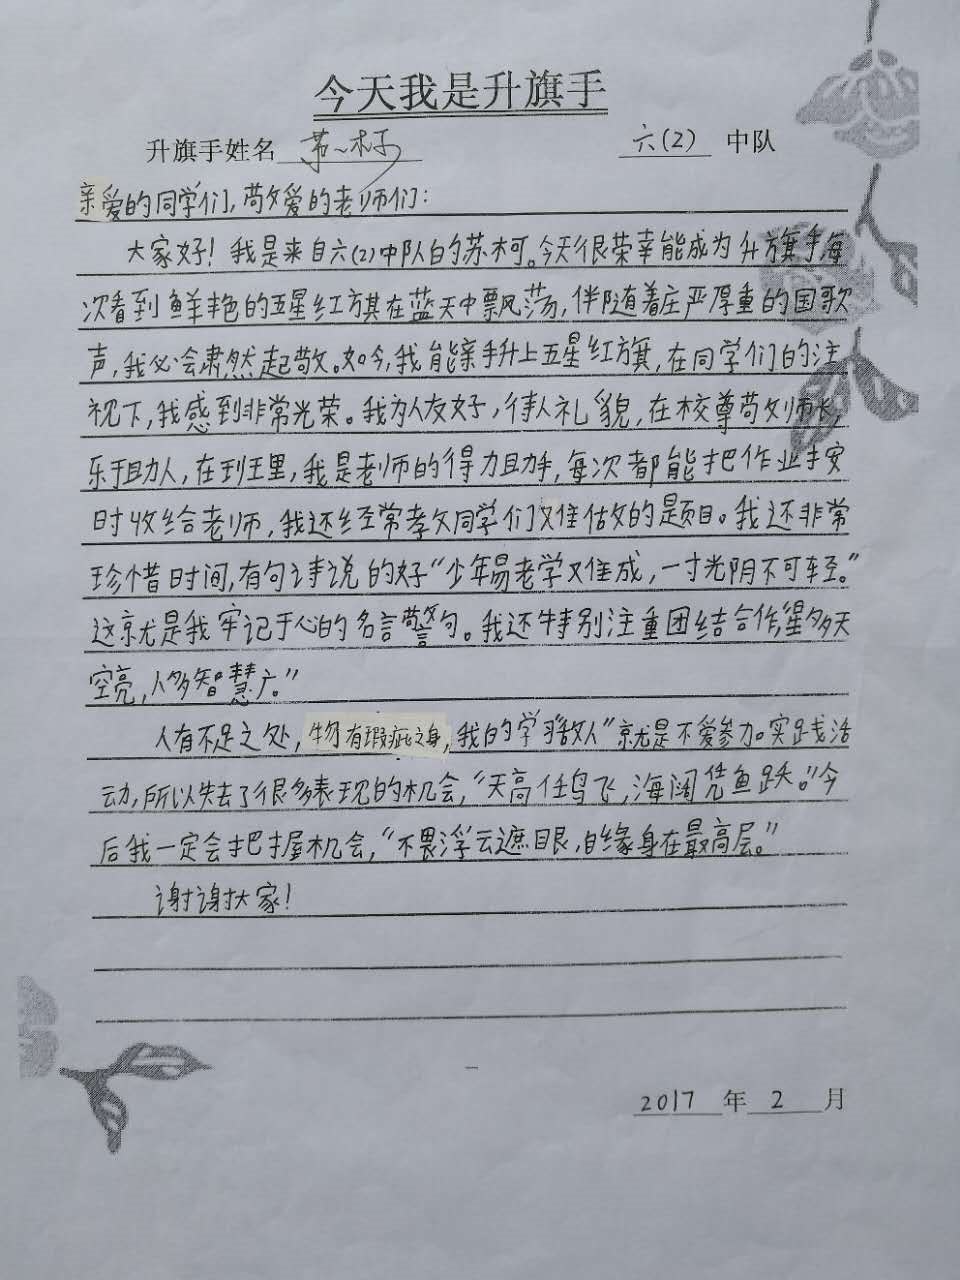 今天我是升旗手
升旗手姓名 苏柯 六(2) 中队
亲爱的同学们,敬爱的老师们:
大家好!我是来自六(2)中队的苏柯。今天很荣幸能成为升旗手,每
次看到鲜艳的五星红旗在蓝天中飘荡,伴随着庄严厚重的国歌
声,我必会肃然起敬。如今,我能亲手升上五星红旗,在同学们的注
视下,我感到非常光荣。我为人友好,待人礼貌,在校尊敬师长,
乐于助人,在班里,我是老师的得力助手,每次都能把作业按
时收给老师,我还经常教同学们难做的题目。我还非常
珍惜时间,有句诗说的好“少年易老学难成,一寸光阴不可轻。”
这就是我牢记于心的名言警句。我还特别注重团结合作,“星多天
空亮,人多智慧广。”
人有不足之处,物有瑕疵之身,我的学习“敌人”就是不爱参加实践活
动,所以失去了很多表现的机会,“天高任鸟飞,海阔凭鱼跃。”今
后我一定会把握机会,“不畏浮云遮目眼,自缘身在最高层。”
谢谢大家!
2017 年 2 月